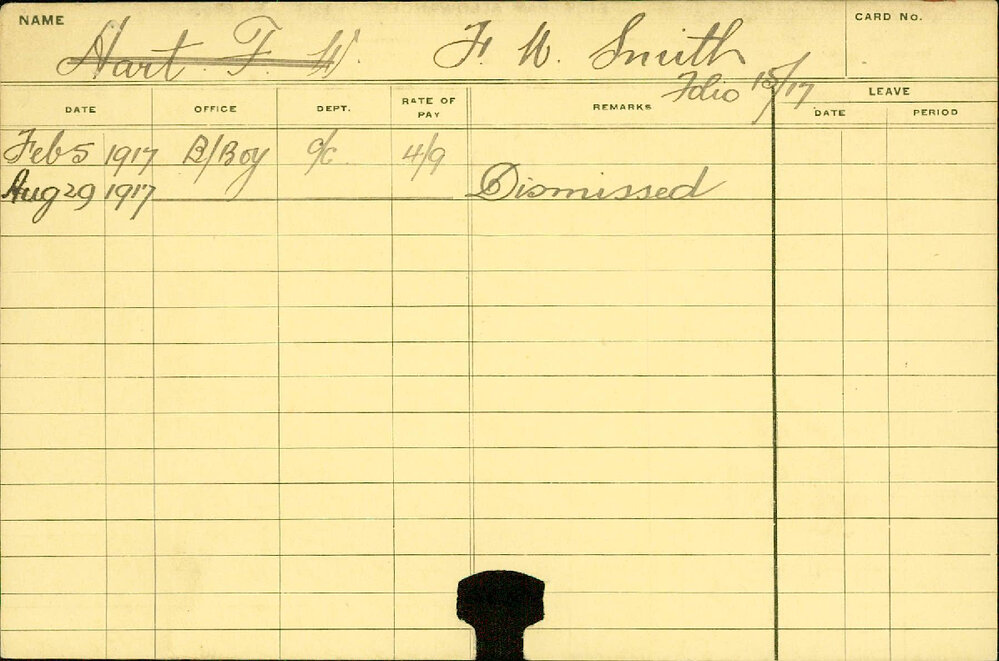 NAME Hart F. W. F. W. Smith CARD No.
Folio 15/17
DATE OFFICE DEPT. RATE OF PAY REMARKS LEAVE
DATE PERIOD
Feb 5 1917 B/Boy C/C 4/9
Aug 29 1917 Dismissed